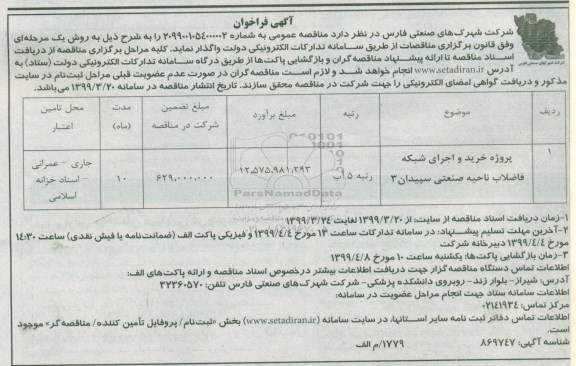 آگهی فراخوان
شرکت شهرک‌های صنعتی فارس در نظر دارد مناقصه عمومی به شماره ۲۰۹۹۰۰۱۰۵۴۰۰۰۰۰۲ را به شرح ذیل به روش یک مرحله‌ای
وفق قانون برگزاری مناقصات از طریق سـامانه تدارکات الکترونیکی دولت واگذار نماید. کلیه مراحل برگزاری مناقصه از دریافت
اسـناد مناقصه تا ارائه پیشنهاد مناقصه گران و بازگشایی پاکت‌ها از طریق درگاه سـامانه تدارکات الکترونیکی دولت (ستاد) به
آدرس www.setadiran.ir انجام خواهد شـد و لازم اسـت مناقصه گران در صورت عدم عضویت قبلی مراحل ثبت‌نام در سایت
مذکور و دریافت گواهی امضای الکترونیکی را جهت شرکت در مناقصه محقق سازند. تاریخ انتشار مناقصه در سامانه ۱۳۹۹/۳/۲۰ می‌باشد.
ردیف موضوع رتبه مبلغ برآورد مبلغ تضمین شرکت در مناقصه مدت (ماه) محل تامین اعتبار
۱ پروژه خرید و اجرای شبکه فاضلاب ناحیه صنعتی سپیدان۳ رتبه ۵ آب ۱۲،۵۷۵،۹۸۱،۲۹۳ ۶۲۹،۰۰۰،۰۰۰ ۱۰ جاری – عمرانی – اسناد خزانه اسلامی
ParsNamadData
۱–زمان دریافت اسناد مناقصه از سایت: از ۱۳۹۹/۳/۲۰ لغایت ۱۳۹۹/۳/۲۴
۲–آخرین مهلت تسلیم پیشـنهاد: در سامانه تدارکات ساعت ۱۳ مورخ ۱۳۹۹/۴/۴ و فیزیکی پاکت الف (ضمانت‌نامه یا فیش نقدی) ساعت ۱۴:۳۰
مورخ ۱۳۹۹/۴/۴ دبیرخانه شرکت
۳–زمان بازگشایی پاکت‌ها: یکشنبه ساعت ۱۰ مورخ ۱۳۹۹/۴/۸
اطلاعات تماس دستگاه مناقصه گزار جهت دریافت اطلاعات بیشتر درخصوص اسناد مناقصه و ارائه پاکت‌های الف:
آدرس: شیراز– بلوار زند– روبروی دانشکده پزشکی– شرکت شهرک‌های صنعتی فارس تلفن: ۳۲۳۶۰۵۷۰
اطلاعات سامانه ستاد جهت انجام مراحل عضویت در سامانه:
مرکز تماس: ۰۲۱۴۱۹۳۴
اطلاعات تماس دفاتر ثبت نامه سایر اسـتانها، در سایت سامانه (www.setadiran.ir) بخش «ثبت‌نام/ پروفایل تأمین کننده/ مناقصه‌گر» موجود
است.
شناسه آگهی: ۸۶۹۷۴۷ ۱۷۷۹/م الف